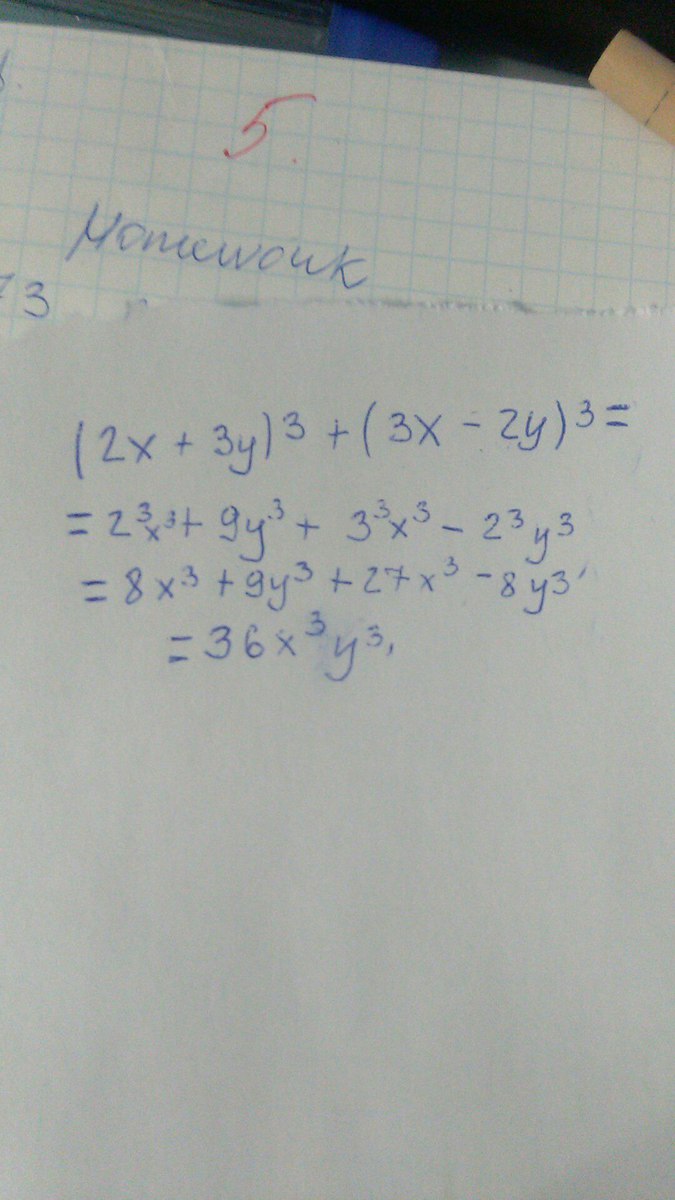 5.
Homework
73
(2x + 3y)³ + (3x - 2y)³ =
= 2³x³ + 9y³ + 3³x³ - 2³y³
= 8x³ + 9y³ + 27x³ - 8y³
= 36x³y³.